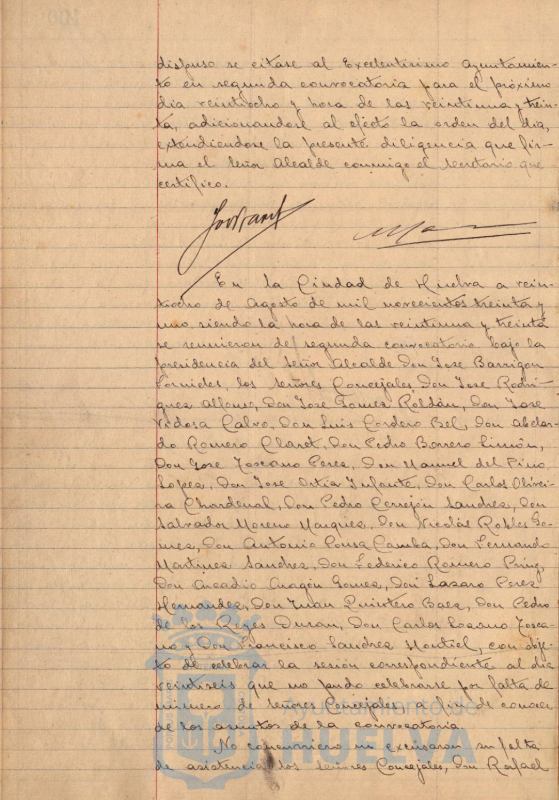 dispuso se citase al Excelentisimo Ayuntamien-
to en segunda convocatoria para el próximo
dia veintiocho y hora de las veintiuna y trein-
ta, adicionandose al efecto la orden del dia,
extendiendose la presente diligencia que fir-
ma el Señor Alcalde conmigo el Secretario que
certifico.
En la Ciudad de Huelva a vein-
tiocho de Agosto de mil novecientos treinta y
uno, siendo la hora de las veintiuna y treinta
se reunieron de segunda convocatoria bajo la
presidencia del Señor Alcalde Don Jose Barrigon
Fornieles, los señores Concejales Don Jose Rodri-
guez Alfonso, Don Jose Gomez Roldán, Don Jose
Vedosa Calvo, Don Luis Cordero Bel, Don Abelar-
do Romero Claret, Don Pedro Borrero Limón,
Don Jose Toscano Perez, Don Manuel del Pino
Lopez, Don Jose Ortiz Infante, Don Carlos Olivei-
ra Chardenal, Don Pedro Cerrejón Sanchez, Don
Salvador Moreno Marquez, Don Nicolás Robles Go-
mez, Don Antonio Pousa Camba, Don Fernando
Martinez Sanchez, Don Federico Romero
Don Arcadio Aragón Gomez, Don Lazaro Perez
Hernandez, Don Juan Quintero Baez, Don Pedro
de los Reyes Duran, Don Carlos Lozano Tosca-
no y Don Francisco Sanchez Montiel, con obje-
to de celebrar la sesión correspondiente al dia
veintiseis que no pudo celebrarse por falta de
número de señores Concejales, a fin de conocer
de los asuntos de la convocatoria.
No concurrieron ni excusaron su falta
de asistencia los señores Concejales, Don Rafael
Ayuntamiento de
HUELVA